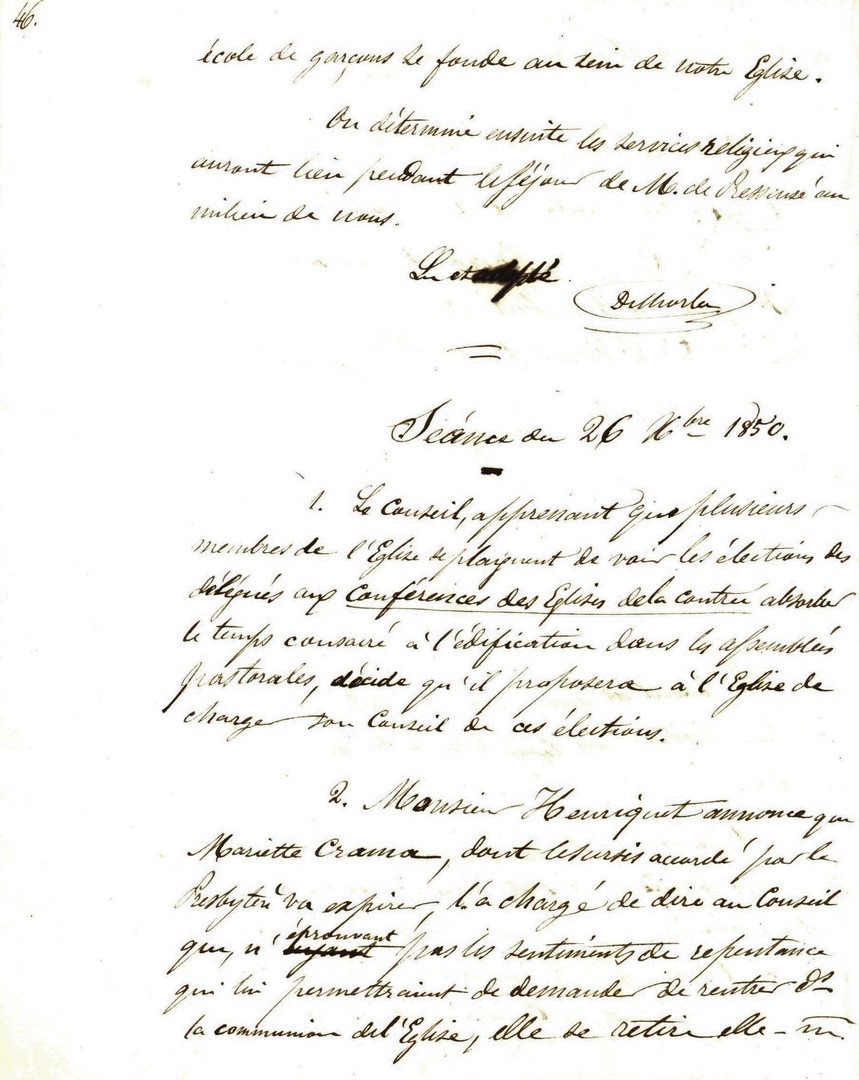 46.
école de garçons se fonde au sein de notre Eglise.
On détermine ensuite les services religieux qui
auront lieu pendant le séjour de M. de Pressensé au
milieu de nous.
Lu et adopté
Séance du 26 Xbre 1850.
1. Le Conseil, apprenant que plusieurs
membres de l'Eglise se plaignent de voir les élections des
délégués aux Conférences des Eglises de la contrée absorber
le temps consacré à l'édification dans les assemblées
pastorales, décide qu'il proposera à l'Eglise de
charger son Conseil de ces élections.
2. Monsieur Henriquet annonce que
Mariette Crama, dont le sursis accordé par le
Presbytère va expirer, l'a chargé de dire au Conseil
que, n'éprouvant pas les sentiments de repentance
qui lui permettraient de demander de rentrer ds
la communion de l'Eglise, elle se retire elle-m